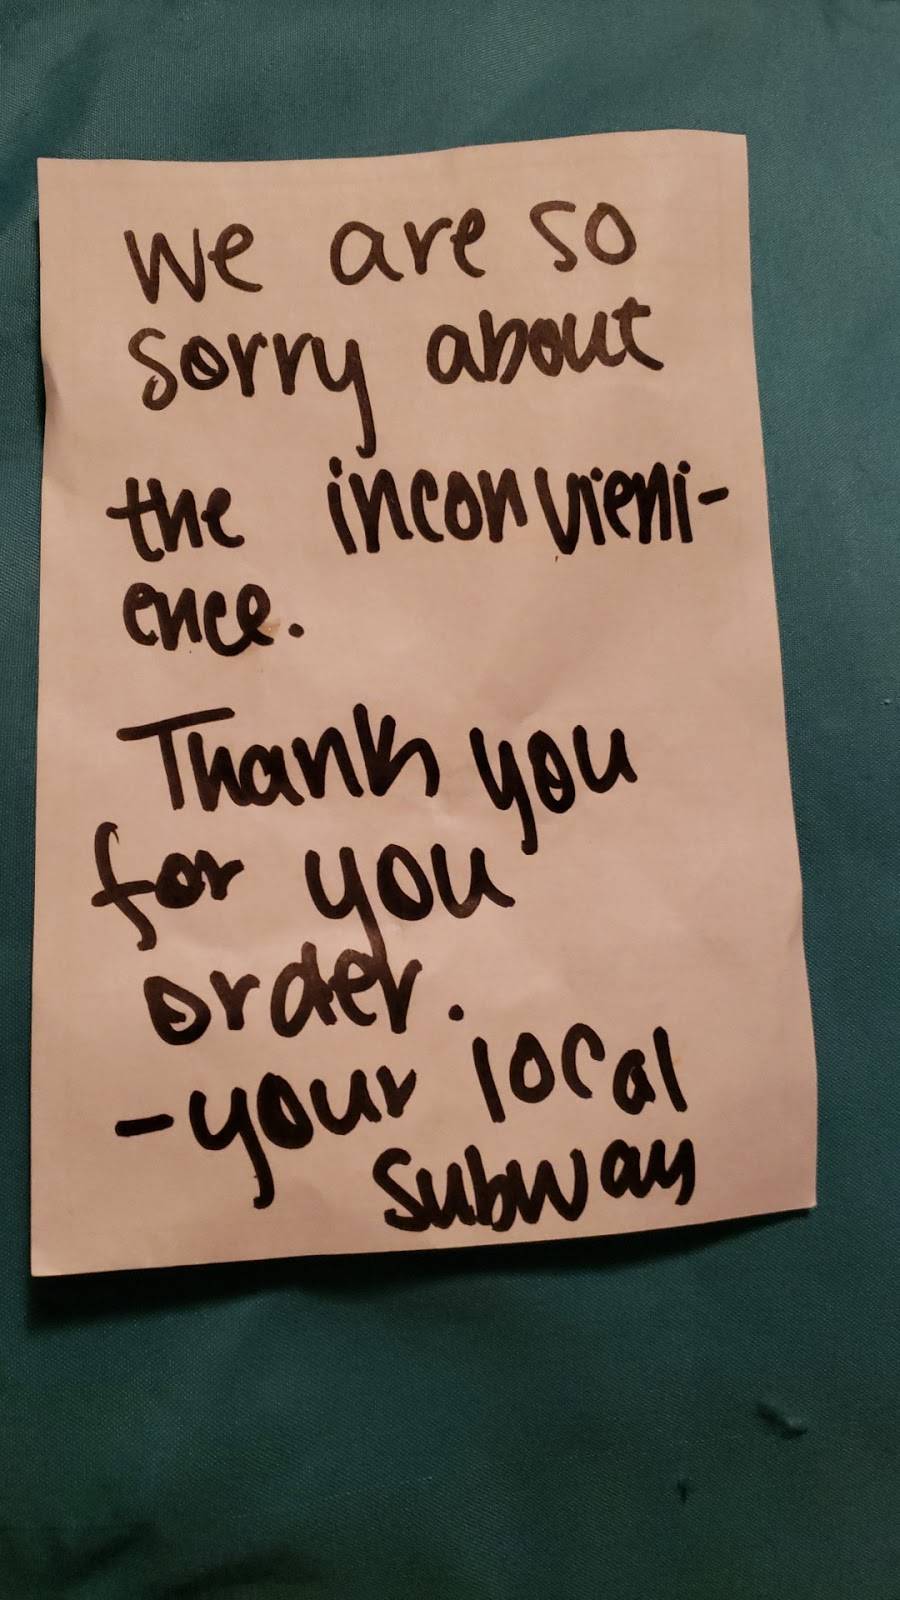 we are so
sorry about
the inconvieni-
ence.
Thank you
for you
order.
-your local
subway